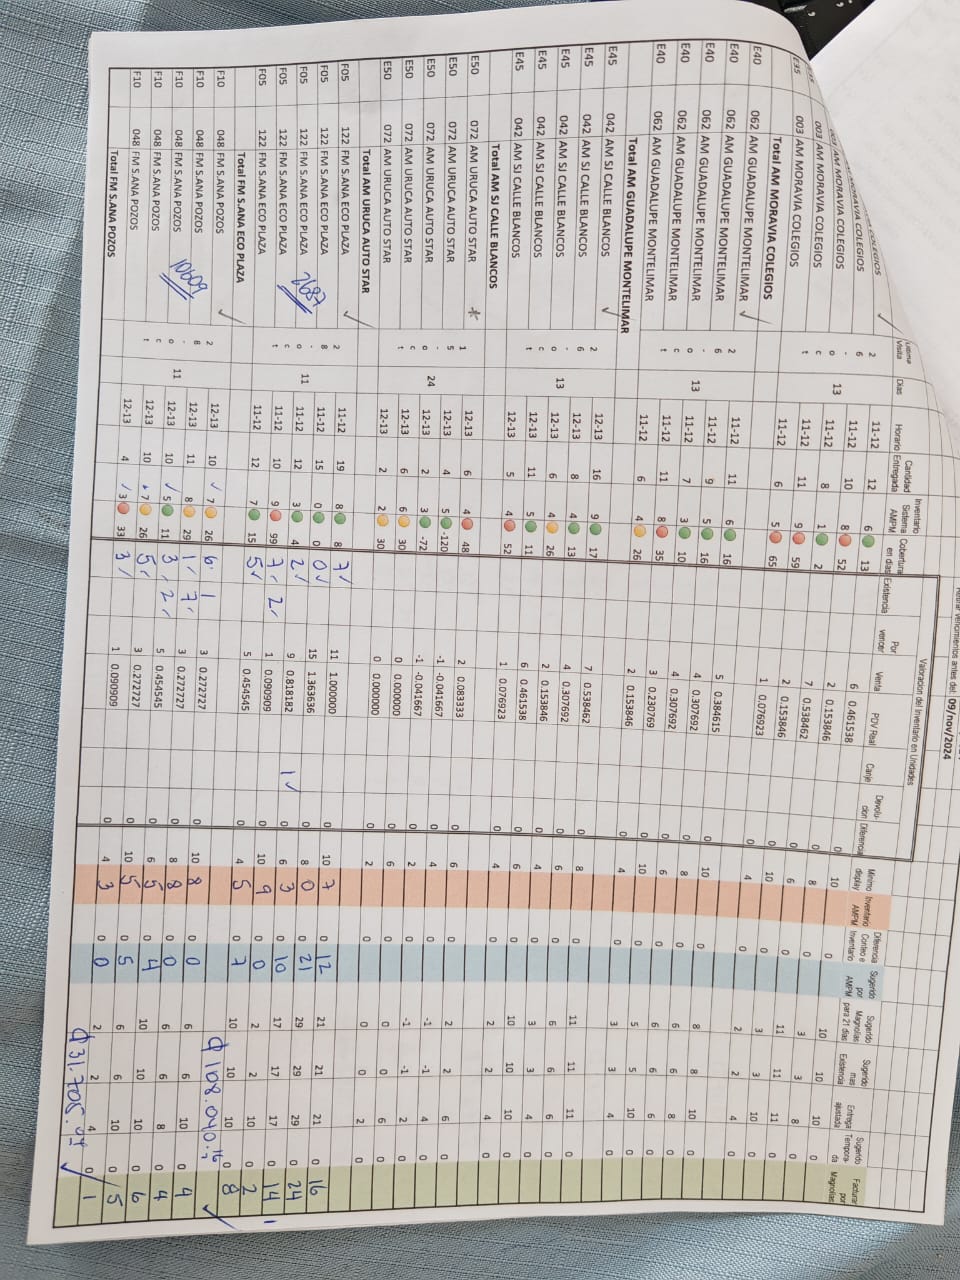 Retirar vencimientos antes del: 09/nov/2024
Valoracion del Inventario en Unidades
Ultima Visita | Dias | Horario | Cantidad Entregada | Inventario Sistema AMPM | Cobertura en dias | Existencia | Por vencer | Venta | PDV Real | Canje | Devolucion | Diferencia | Minimo display | Inventario AMPM | Diferencia Conteo e Inventario | Sugerido por AMPM | Sugerido Magnolias para 21 dias | Sugerido mas Existencia | Entrega ajustada | Sugerido Temporada | Facturar por Magnolias
COLEGIOS 11-12 12 6 13 6 0.461538 0 10 0 10 10 10 0
AM MORAVIA COLEGIOS 11-12 10 8 52 2 0.153846 0 8 0 3 3 8 0
003 AM MORAVIA COLEGIOS 26-oct 13 11-12 8 1 2 7 0.538462 0 6 0 11 11 11 0
E35 003 AM MORAVIA COLEGIOS 11-12 11 9 59 2 0.153846 0 10 0 3 3 10 0
E35 003 AM MORAVIA COLEGIOS 11-12 6 5 65 1 0.076923 0 4 0 2 2 4 0
Total AM MORAVIA COLEGIOS
E40 062 AM GUADALUPE MONTELIMAR 11-12 11 6 16 5 0.384615 0 10 0 8 8 10 0
E40 062 AM GUADALUPE MONTELIMAR 11-12 9 5 16 4 0.307692 0 8 0 6 6 8 0
E40 062 AM GUADALUPE MONTELIMAR 26-oct 13 11-12 7 3 10 4 0.307692 0 6 0 6 6 6 0
E40 062 AM GUADALUPE MONTELIMAR 11-12 11 8 35 3 0.230769 0 10 0 5 5 10 0
E40 062 AM GUADALUPE MONTELIMAR 11-12 6 4 26 2 0.153846 0 4 0 3 3 4 0
Total AM GUADALUPE MONTELIMAR
E45 042 AM SJ CALLE BLANCOS 12-13 16 9 17 7 0.538462 0 8 0 11 11 11 0
E45 042 AM SJ CALLE BLANCOS 12-13 8 4 13 4 0.307692 0 6 0 6 6 6 0
E45 042 AM SJ CALLE BLANCOS 26-oct 13 12-13 6 4 26 2 0.153846 0 4 0 3 3 4 0
E45 042 AM SJ CALLE BLANCOS 12-13 11 5 11 6 0.461538 0 6 0 10 10 10 0
E45 042 AM SJ CALLE BLANCOS 12-13 5 4 52 1 0.076923 0 4 0 2 2 4 0
Total AM SJ CALLE BLANCOS
E50 072 AM URUCA AUTO STAR 12-13 6 4 48 2 0.083333 0 6 0 2 2 6 0
E50 072 AM URUCA AUTO STAR 12-13 4 5 -120 -1 -0.041667 0 4 0 -1 -1 4 0
E50 072 AM URUCA AUTO STAR 15-oct 24 12-13 2 3 -72 -1 -0.041667 0 2 0 -1 -1 2 0
E50 072 AM URUCA AUTO STAR 12-13 6 6 30 0 0.000000 0 6 0 0 0 6 0
E50 072 AM URUCA AUTO STAR 12-13 2 2 30 0 0.000000 0 2 0 0 0 2 0
Total AM URUCA AUTO STAR
F05 122 FM S.ANA ECO PLAZA 11-12 19 8 8 7✓ 11 1.000000 0 10 7 0 12 21 21 21 0 16
F05 122 FM S.ANA ECO PLAZA 11-12 15 0 0 0✓ 15 1.363636 0 8 0 0 21 29 29 29 0 24
F05 122 FM S.ANA ECO PLAZA 2687 28-oct 11 11-12 12 3 4 2✓ 9 0.818182 1✓ 0 6 3 0 10 17 17 17 0 14 1
F05 122 FM S.ANA ECO PLAZA 11-12 10 9 99 7 2 1 0.090909 0 10 9 0 0 2 2 10 0 2
F05 122 FM S.ANA ECO PLAZA 11-12 12 7 15 5✓ 5 0.454545 0 4 5 0 7 10 10 10 0 8
Total FM S.ANA ECO PLAZA ₡108.040.
F10 048 FM S.ANA POZOS 12-13 10 ✓ 7 26 6 1 3 0.272727 0 10 8 0 0 6 6 10 0 4
F10 048 FM S.ANA POZOS 12-13 11 8 29 1 7 3 0.272727 0 8 8 0 0 6 6 8 0 4
F10 048 FM S.ANA POZOS 10609 28-oct 11 12-13 10 ✓ 5 11 3 2 5 0.454545 0 6 5 0 4 10 10 10 0 6
F10 048 FM S.ANA POZOS 12-13 10 7 26 5 3 0.272727 0 10 5 0 5 6 6 10 0 5
F10 048 FM S.ANA POZOS 12-13 4 ✓ 3 33 3 1 0.090909 0 4 3 0 0 2 2 4 0 1
Total FM S.ANA POZOS ₡31.705.